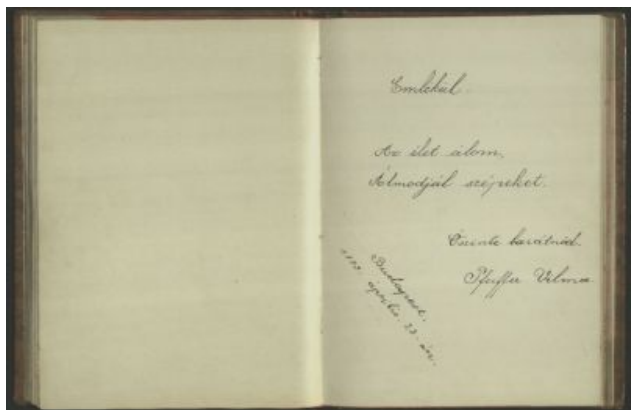 Emlékül.
Az élet álom,
Álmodjál szépeket.
Őszinte barátnéd
Pfeiffer Vilma
Budapest.
április. 23. án.